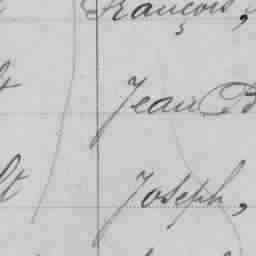 François,
Jean B
lt Joseph,